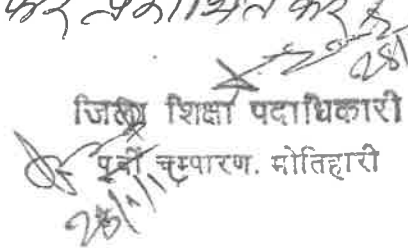 कर प्रकाशित करें
28/
जिला शिक्षा पदाधिकारी
पूर्वी चम्पारण. मोतिहारी
28/11/